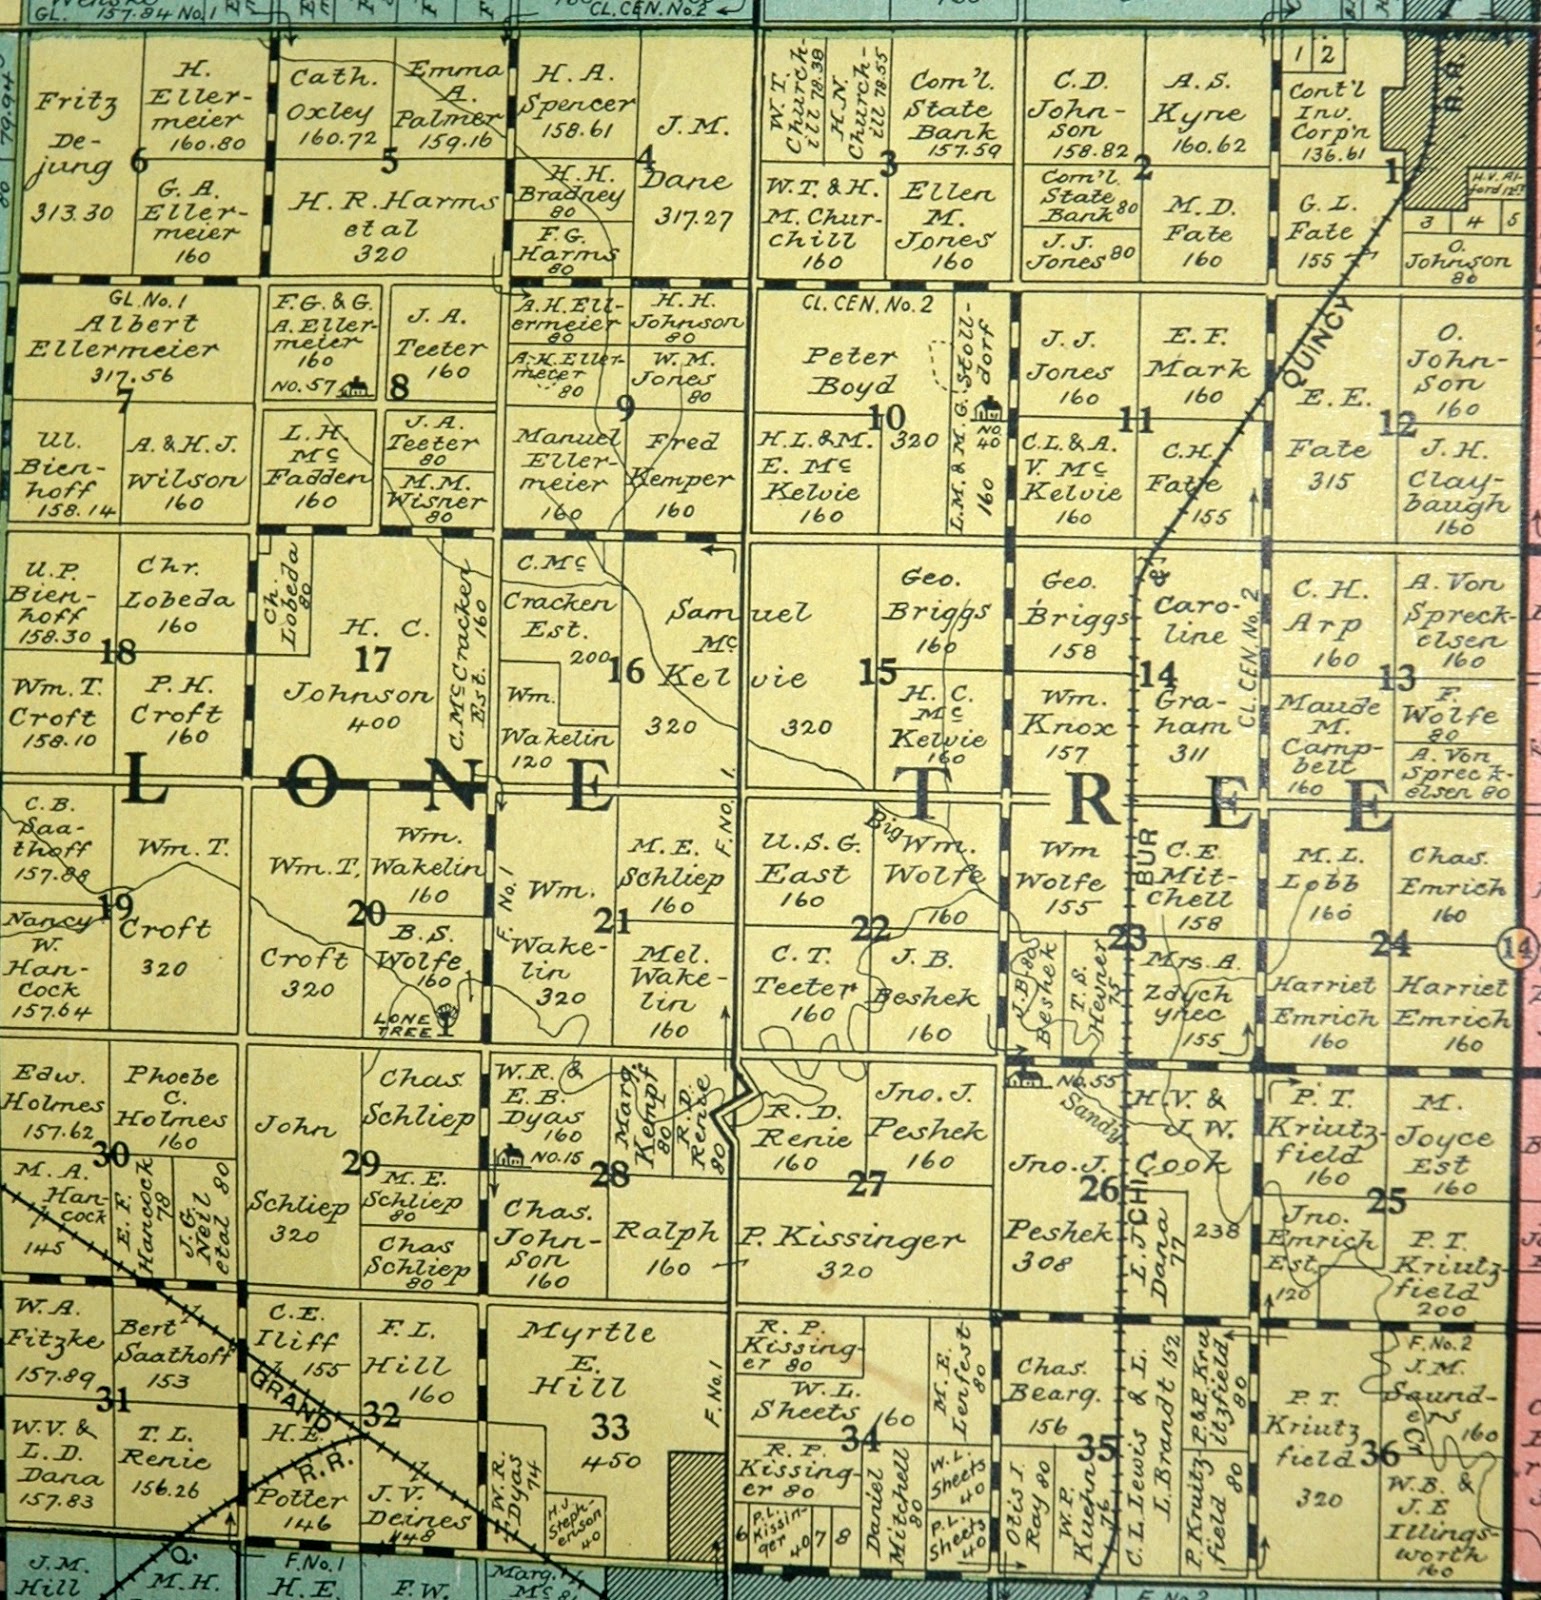 GL.
157.84 No.1
CL.CEN.No.2
Fritz
De-
jung
313.30
H.
Eller-
meier
160.80
6
G. A.
Eller-
meier
160
Cath.
Oxley
160.72
Emma
A.
Palmer
159.16
5
H. R. Harms
et al
320
H. A.
Spencer
158.61
J. M.
Dane
317.27
4
H. H.
Bradney
80
F. G.
Harms
80
W. T.
Church-
ill 78.38
H. N.
Church-
ill 78.55
Com'l.
State
Bank
157.59
3
W. T. & H.
M. Chur-
chill
160
Ellen
M.
Jones
160
C. D.
John-
son
158.82
A. S.
Kyne
160.62
2
Com'l.
State
Bank 80
J. J.
Jones 80
M. D.
Fate
160
1 2
Cont'l
Inv.
Corp'n
136.61
1
R.R.
H. V. Al-
ford 12
3 4 5
G. L.
Fate
155
O.
Johnson
80
GL. No. 1
Albert
Ellermeier
317.56
7
Ul.
Bien-
hoff
158.14
A. & H. J.
Wilson
160
F. G. & G.
A. Eller-
meier
160
NO. 57
J. A.
Teeter
160
8
L. H.
Mc
Fadden
160
J. A.
Teeter
80
M. M.
Wisner
80
A. H. Ell-
ermeier
80
H. H.
Johnson
80
A. H. Eller-
meier
80
W. M.
Jones
80
9
Manuel
Eller-
meier
160
Fred
Kemper
160
CL. CEN. No. 2
Peter
Boyd
320
10
L. M. & M. G. Stoll-
dorf
160
NO.
40
H. L. & M.
E. Mc
Kelvie
160
J. J.
Jones
160
E. F.
Mark
160
11
C. L. & A.
V. Mc
Kelvie
160
C. H.
Fate
155
QUINCY
E. E.
Fate
315
12
O.
John-
son
160
J. H.
Clay-
baugh
160
U. P.
Bien-
hoff
158.30
Chr.
Lobeda
160
18
Wm. T.
Croft
158.10
P. H.
Croft
160
Ch.
Lobeda
80
H. C.
17
Johnson
400
C. Mc Cracken
Est. 160
C. Mc
Cracken
Est.
200
16
Wm.
Wakelin
120
Samuel
Mc
Kelvie
320
320
15
Geo.
Briggs
160
H. C.
Mc
Kelvie
160
Geo.
Briggs
158
&
Caro-
line
14
Wm.
Knox
157
Gra-
ham
311
CL. CEN. No. 2
C. H.
Arp
160
A. Von
Spreck-
elsen
160
13
Maude
M.
Camp-
belt
160
F.
Wolfe
80
A. Von
Spreck-
elsen 80
LONE TREE
C. B.
Saa-
thoff
157.88
Wm. T.
Croft
320
19
Nancy
W.
Han-
cock
157.64
Wm. T.
Croft
320
Wm.
Wakelin
160
20
B. S.
Wolfe
160
LONE
TREE
F. No. 1
Wm.
Wake-
lin
320
21
M. E.
Schliep
160
Mel.
Wake-
lin
160
F. NO. 1.
U. S. G.
East
160
Big
Wm.
Wolfe
160
22
C. T.
Teeter
160
J. B.
Beshek
160
Wm
Wolfe
155
BUR
C. E.
Mit-
chell
158
23
J. B. 80
Beshek
T. S.
Hevner
75
Mrs. A.
Zdych
ynec
155
M. L.
Lobb
160
Chas.
Emrich
160
24
Harriet
Emrich
160
Harriet
Emrich
160
14
Edw.
Holmes
157.62
Phoebe
C.
Holmes
160
30
M. A.
Han-
cock
145
E. F.
Hancock
78
J. G.
Neil
et al 80
John
Schliep
320
Chas.
Schliep
29
M. E.
Schliep
80
Chas
Schliep
80
W. R. &
E. B.
Dyas
160
NO. 15
Marg.
Kempf
80
R. D.
Renie
80
28
Chas.
John-
son
160
Ralph
160
R. D.
Renie
160
Jno. J.
Peshek
160
27
P. Kissinger
320
No. 55
Sandy
H. V. &
J. W.
Cook
238
Jno. J.
Peshek
308
26
CHI.
E. J.
Dana
77
P. T.
Kriutz-
field
160
M.
Joyce
Est
160
25
Jno.
Emrich
Est.
120
P. T.
Kriutz-
field
200
W. A.
Fitzke
157.89
Bert
Saathoff
153
31
W. V. &
L. D.
Dana
157.83
T. L.
Renie
156.26
C. E.
Iliff
155
F. L.
Hill
160
GRAND
32
H. E.
Potter
146
R.R.
J. V.
Deines
148
Myrtle
E.
Hill
33
450
W. R.
Dyas
74
H. J.
Steph-
enson
40
F. No. 1
R. P.
Kissing-
er 80
W. L.
Sheets
160
M. E.
Lenfest
80
34
R. P.
Kissing-
er 80
6
P. L.
Kissin-
ger
40
7 8
Daniel
Mitchell
80
W. L.
Sheets
40
P. L.
Sheets
40
Chas.
Bearg.
156
35
Otis I.
Ray 80
W. P.
Kuehn
76
C. L. Lewis & L.
L. Brandt 152
P. & P. Kru
itzfield
80
P. Kruitz-
field 80
P. T.
Kriutz
field
320
36
F. No. 2
J. M.
Saund-
ers
160
Cr.
W. B. &
J. E
Illings-
worth
160
J. M.
Hill
Q.
M. H.
F. No. 1
H. E.
F. W.
Marg.
Mc
F. No. 2